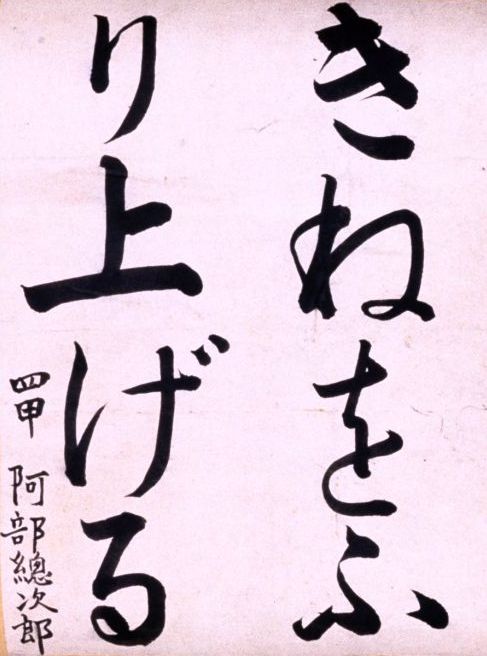 きねをふ
り上げる
四甲 阿部總次郎